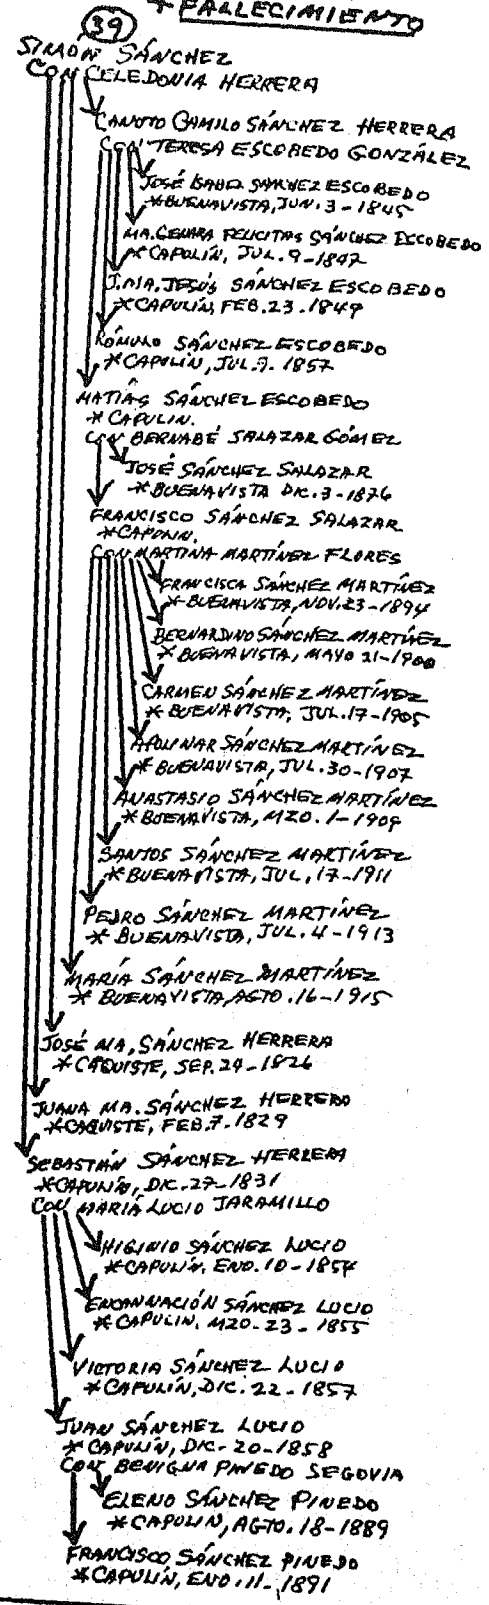 + FALLECIMIENTO
39
SIMÓN SÁNCHEZ
CON CELEDONIA HERRERA
CANUTO CAMILO SÁNCHEZ HERRERA
CON TERESA ESCOBEDO GONZÁLEZ
JOSÉ SABÁS SÁNCHEZ ESCOBEDO
*BUENAVISTA, JUN. 3-1845
MA. GENARA FELICITAS SÁNCHEZ ESCOBEDO
*CAPULÍN, JUL. 9-1847
J. MA. JESÚS SÁNCHEZ ESCOBEDO
*CAPULÍN, FEB. 23.1849
RÓMULO SÁNCHEZ ESCOBEDO
*CAPULÍN, JUL. 9. 1857
MATÍAS SÁNCHEZ ESCOBEDO
*CAPULÍN.
CON BERNABÉ SALAZAR GÓMEZ
JOSÉ SÁNCHEZ SALAZAR
*BUENAVISTA DIC. 3-1876
FRANCISCO SÁNCHEZ SALAZAR
*CAPULÍN.
CON MARTINA MARTÍNEZ FLORES
FRANCISCA SÁNCHEZ MARTÍNEZ
*BUENAVISTA, NOV. 23-1894
BERNARDINO SÁNCHEZ MARTÍNEZ
*BUENAVISTA, MAYO 21-1900
CARMEN SÁNCHEZ MARTÍNEZ
*BUENAVISTA, JUL. 17-1905
APOLINAR SÁNCHEZ MARTÍNEZ
*BUENAVISTA, JUL. 30-1907
ANASTASIO SÁNCHEZ MARTÍNEZ
*BUENAVISTA, MZO. 1-1909
SANTOS SÁNCHEZ MARTÍNEZ
*BUENAVISTA, JUL. 17-1911
PEDRO SÁNCHEZ MARTÍNEZ
* BUENAVISTA, JUL. 4-1913
MARÍA SÁNCHEZ MARTÍNEZ
* BUENAVISTA, AGTO. 16-1915
JOSÉ MA. SÁNCHEZ HERRERA
*CAQUISTE, SEP. 24-1826
JUANA MA. SÁNCHEZ HERRERO
*CAQUISTE, FEB. 7.1829
SEBASTIÁN SÁNCHEZ HERRERA
*CAPULÍN, DIC. 27-1831
CON MARÍA LUCIO JARAMILLO
HIGINIO SÁNCHEZ LUCIO
*CAPULÍN. ENO. 10-1854
ENCARNACIÓN SÁNCHEZ LUCIO
*CAPULÍN. MZO-23-1855
VICTORIA SÁNCHEZ LUCIO
*CAPULÍN, DIC. 22-1857
JUAN SÁNCHEZ LUCIO
*CAPULÍN, DIC-20-1858
CON BENIGNA PINEDO SEGOVIA
ELENO SÁNCHEZ PINEDO
*CAPULÍN, AGTO. 18-1889
FRANCISCO SÁNCHEZ PINEDO
*CAPULÍN, ENO. 11-1891